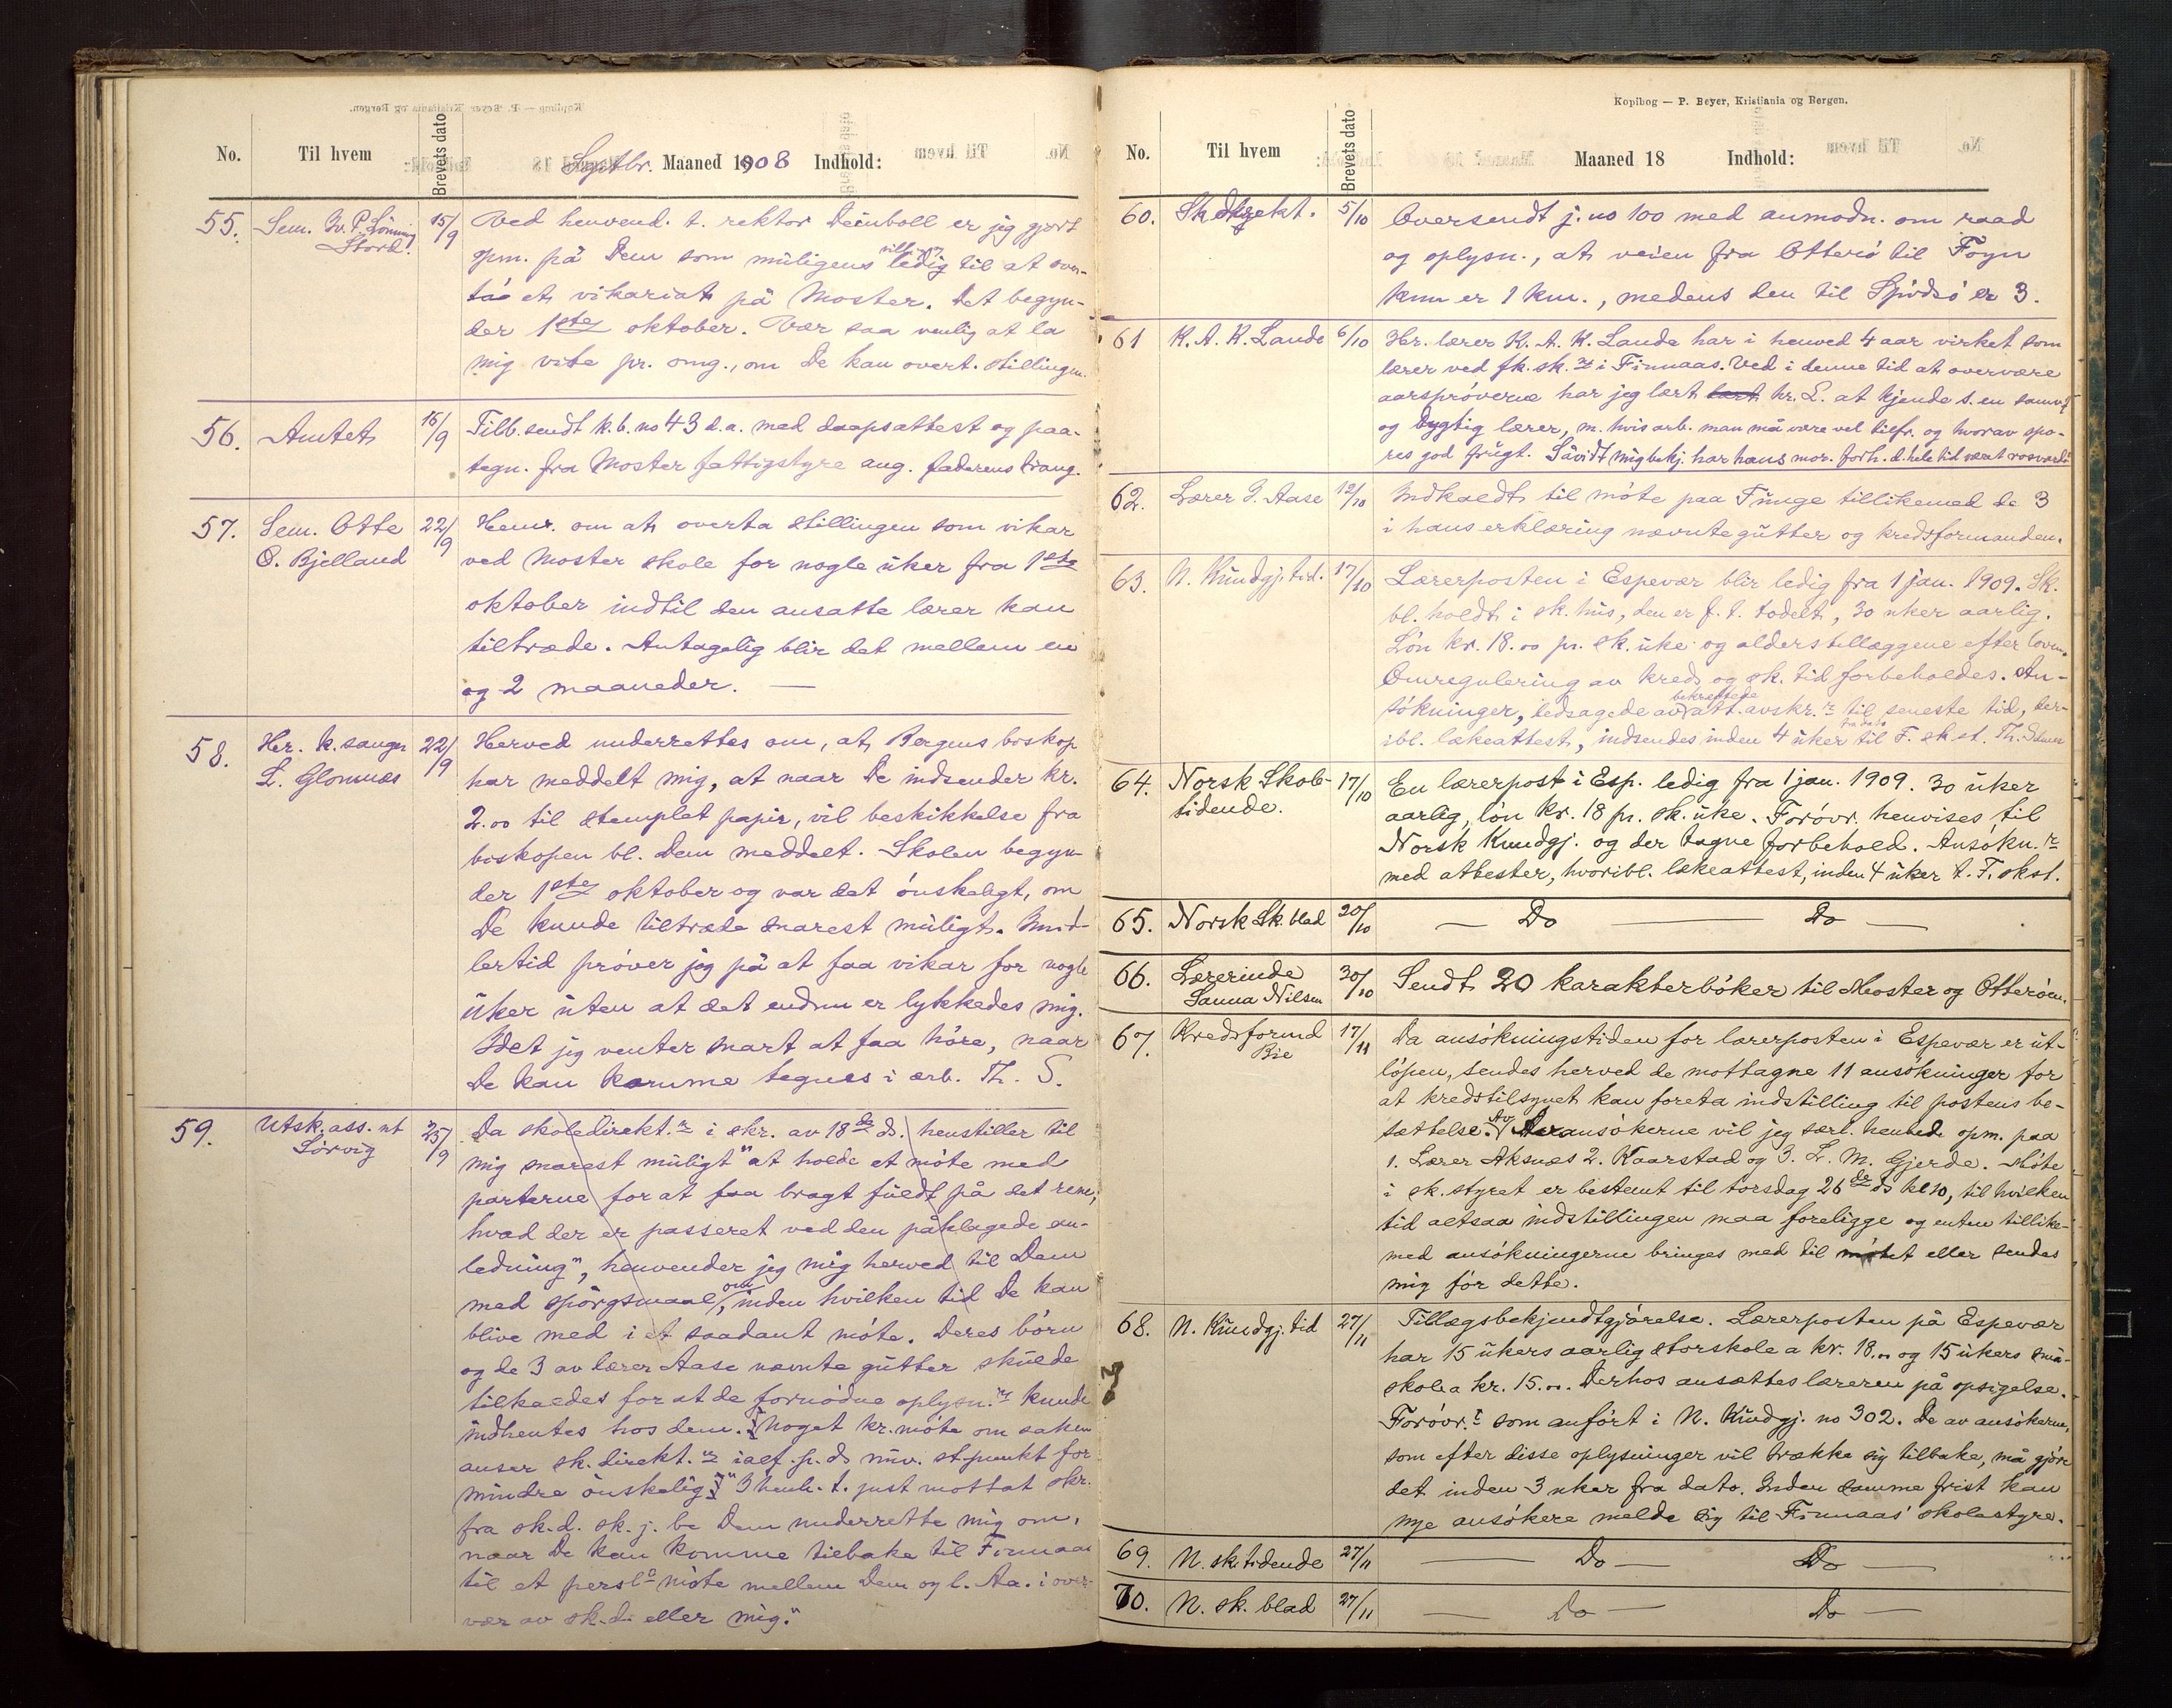 No. Til hvem Brevets dato Septbr. Maaned 1908 Indhold:
55. Sem. N. P. Lönning Stord. 15/9 Ved henvend. t. rektor Deinboll er jeg gjort
opm. på Dem som muligens villig og ledig til at over-
ta et vikariat på Moster. Det begyn-
der 1ste oktober. Vær saa venlig at la
mig vite pr. omg., om De kan overt. stillingen.
56. Amtet 16/9 Tilb.sendt k.b. no 43 d.a. med daapsattest og paa-
tegn. fra Moster fattigstyre ang. faderens trang.
57. Sem. Otto O. Bjelland 22/9 Henv. om at overta stillingen som vikar
ved Moster skole for nogle uker fra 1ste
oktober indtil den ansatte lærer kan
tiltræde. Antagelig blir det mellem en
og 2 maaneder. —
58. Hr. k.sanger L. Glomnæs 22/9 Herved underrettes om, at Bergens biskop
har meddelt mig, at naar De indsender kr.
2.00 til stemplet papir, vil beskikkelse fra
biskopen bl. Dem meddelt. Skolen begyn-
der 1ste oktober og var det ónskeligt, om
De kunde tiltræde snarest muligt. Imid-
lertid próver jeg på at faa vikar for nogle
uker uten at det endnu er lykkedes mig.
Idet jeg venter snart at faa höre, naar
De kan komme tegnes i ærb. Th. S.
59. Utsk. ass. nt Sörvig 25/9 Da skoledirekt.r i skr. av 18de ds. henstiller til
mig snarest muligt "at holde et móte med
parterne for at faa bragt fuldt på det rene,
hvad der er passeret ved den påklagede an-
ledning", henvender jeg mig herved til Dem
med spörgsmaal om, inden hvilken tid De kan
blive med i et saadant móte. Deres börn
og de 3 av lærer Aase nævnte gutter skulde
tilkaldes for at de fornödne oplysn.r kunde
indhentes hos dem. Noget kr.móte om saken
anser sk.direkt.r ialf. p. ds nuv. st.punkt for
mindre önskelig." I henh. t. just mottat skr.
fra sk.d. sk. j. be Dem underrette mig om,
naar De kan komme tilbake til Finnaas
til et persl. móte mellem Dem og l. Aa. i over-
vær av sk.d. eller mig."
Kopibog — P. Beyer, Kristiania og Bergen.
No. Til hvem Brevets dato Maaned 18 Indhold:
60. Sk.direkt. 5/10 Oversendt j. no 100 med anmodn. om raad
og oplysn., at veien fra Otterö til Föyn
kun er 1 km., medens den til Spidsö er 3.
61 K. A. K. Lande 6/10 Hr. lærer K. A. K. Lande har i henved 4 aar virket som
lærer ved fk.sk.r i Finnaas. Ved i denne tid at overvære
aarspróverne har jeg lært hr. L. at kjende s. en samv.
og dygtig lærer, m. hvis arb. man må være vel tilfr. og hvorav spo-
res god frugt. Såvidt mig bekj. har hans mor. forh. d. hele tid været rosværdi
62. Lærer J. Aase 12/10 Indkaldt til móte paa Finge tillikemed de 3
i hans erklæring nævnte gutter og kredsformanden.
63. N. Kundgj.tid. 17/10 Lærerposten i Espevær blir ledig fra 1 jan. 1909. Sk.
bl. holdt i sk.hus, den er f. t. todelt, 30 uker aarlig.
Lön kr. 18.00 pr. sk.uke og alderstillæggene efter loven.
Omregulering av kreds og sk.tid forbeholdes. An-
sókninger, ledsagede av bekræftede att.avskr.r til seneste tid, der-
ibl. lækeattest, indsendes inden 4 uker fra dato til F. sk.st. Th.
64. Norsk Skole- tidende. 17/10 En lærerpost i Esp. ledig fra 1 jan. 1909. 30 uker
aarlig, lön kr. 18 pr. sk.uke. Foróvr. henvises til
Norsk Kundgj. og der tagne forbehold. Ansókn.r
med attester, hvoribl. lækeattest, inden 4 uker t. F. skst.
65. Norsk Sk.blad 20/10 — Do — Do —
66. Lærerinde Sanna Nilsen 30/10 Sendt 20 karakterbóker til Moster og Otteröen.
67. Kredsformd Bie 17/11 Da ansökningstiden for lærerposten i Espevær er ut-
löpen, sendes herved de mottagne 11 ansökninger for
at kredstilsynet kan foreta indstilling til postens be-
sættelse. Av ansökerne vil jeg særl. henlede opm. paa
1. Lærer Aksnæs 2. Kaarstad og 3. L. M. Gjerde. Móte
i sk.styret er bestemt til torsdag 26de ds kl 10, til hvilken
tid altsaa indstillingen maa foreligge og enten tillike-
med ansökningerne bringes med til mötet eller sendes
mig för dette.
68. N. Kundgj.tid 27/11 Tillægsbekjendtgjörelse. Lærerposten på Espevær
har 15 ukers aarlig storskole a kr. 18.00 og 15 ukers små-
skole a kr. 15.00. Derhos ansættes læreren på opsigelse.
Foróvr.t som anfört i N. Kundgj. no 302. De av ansökerne,
som efter disse oplysninger vil trække sig tilbake, må gjöre
det inden 3 uker fra dato. Inden samme frist kan
nye ansökere melde sig til Finnaas' skolestyre.
69. N. sk.tidende 27/11 — Do — Do —
70. N. sk. blad 27/11 — Do — Do —